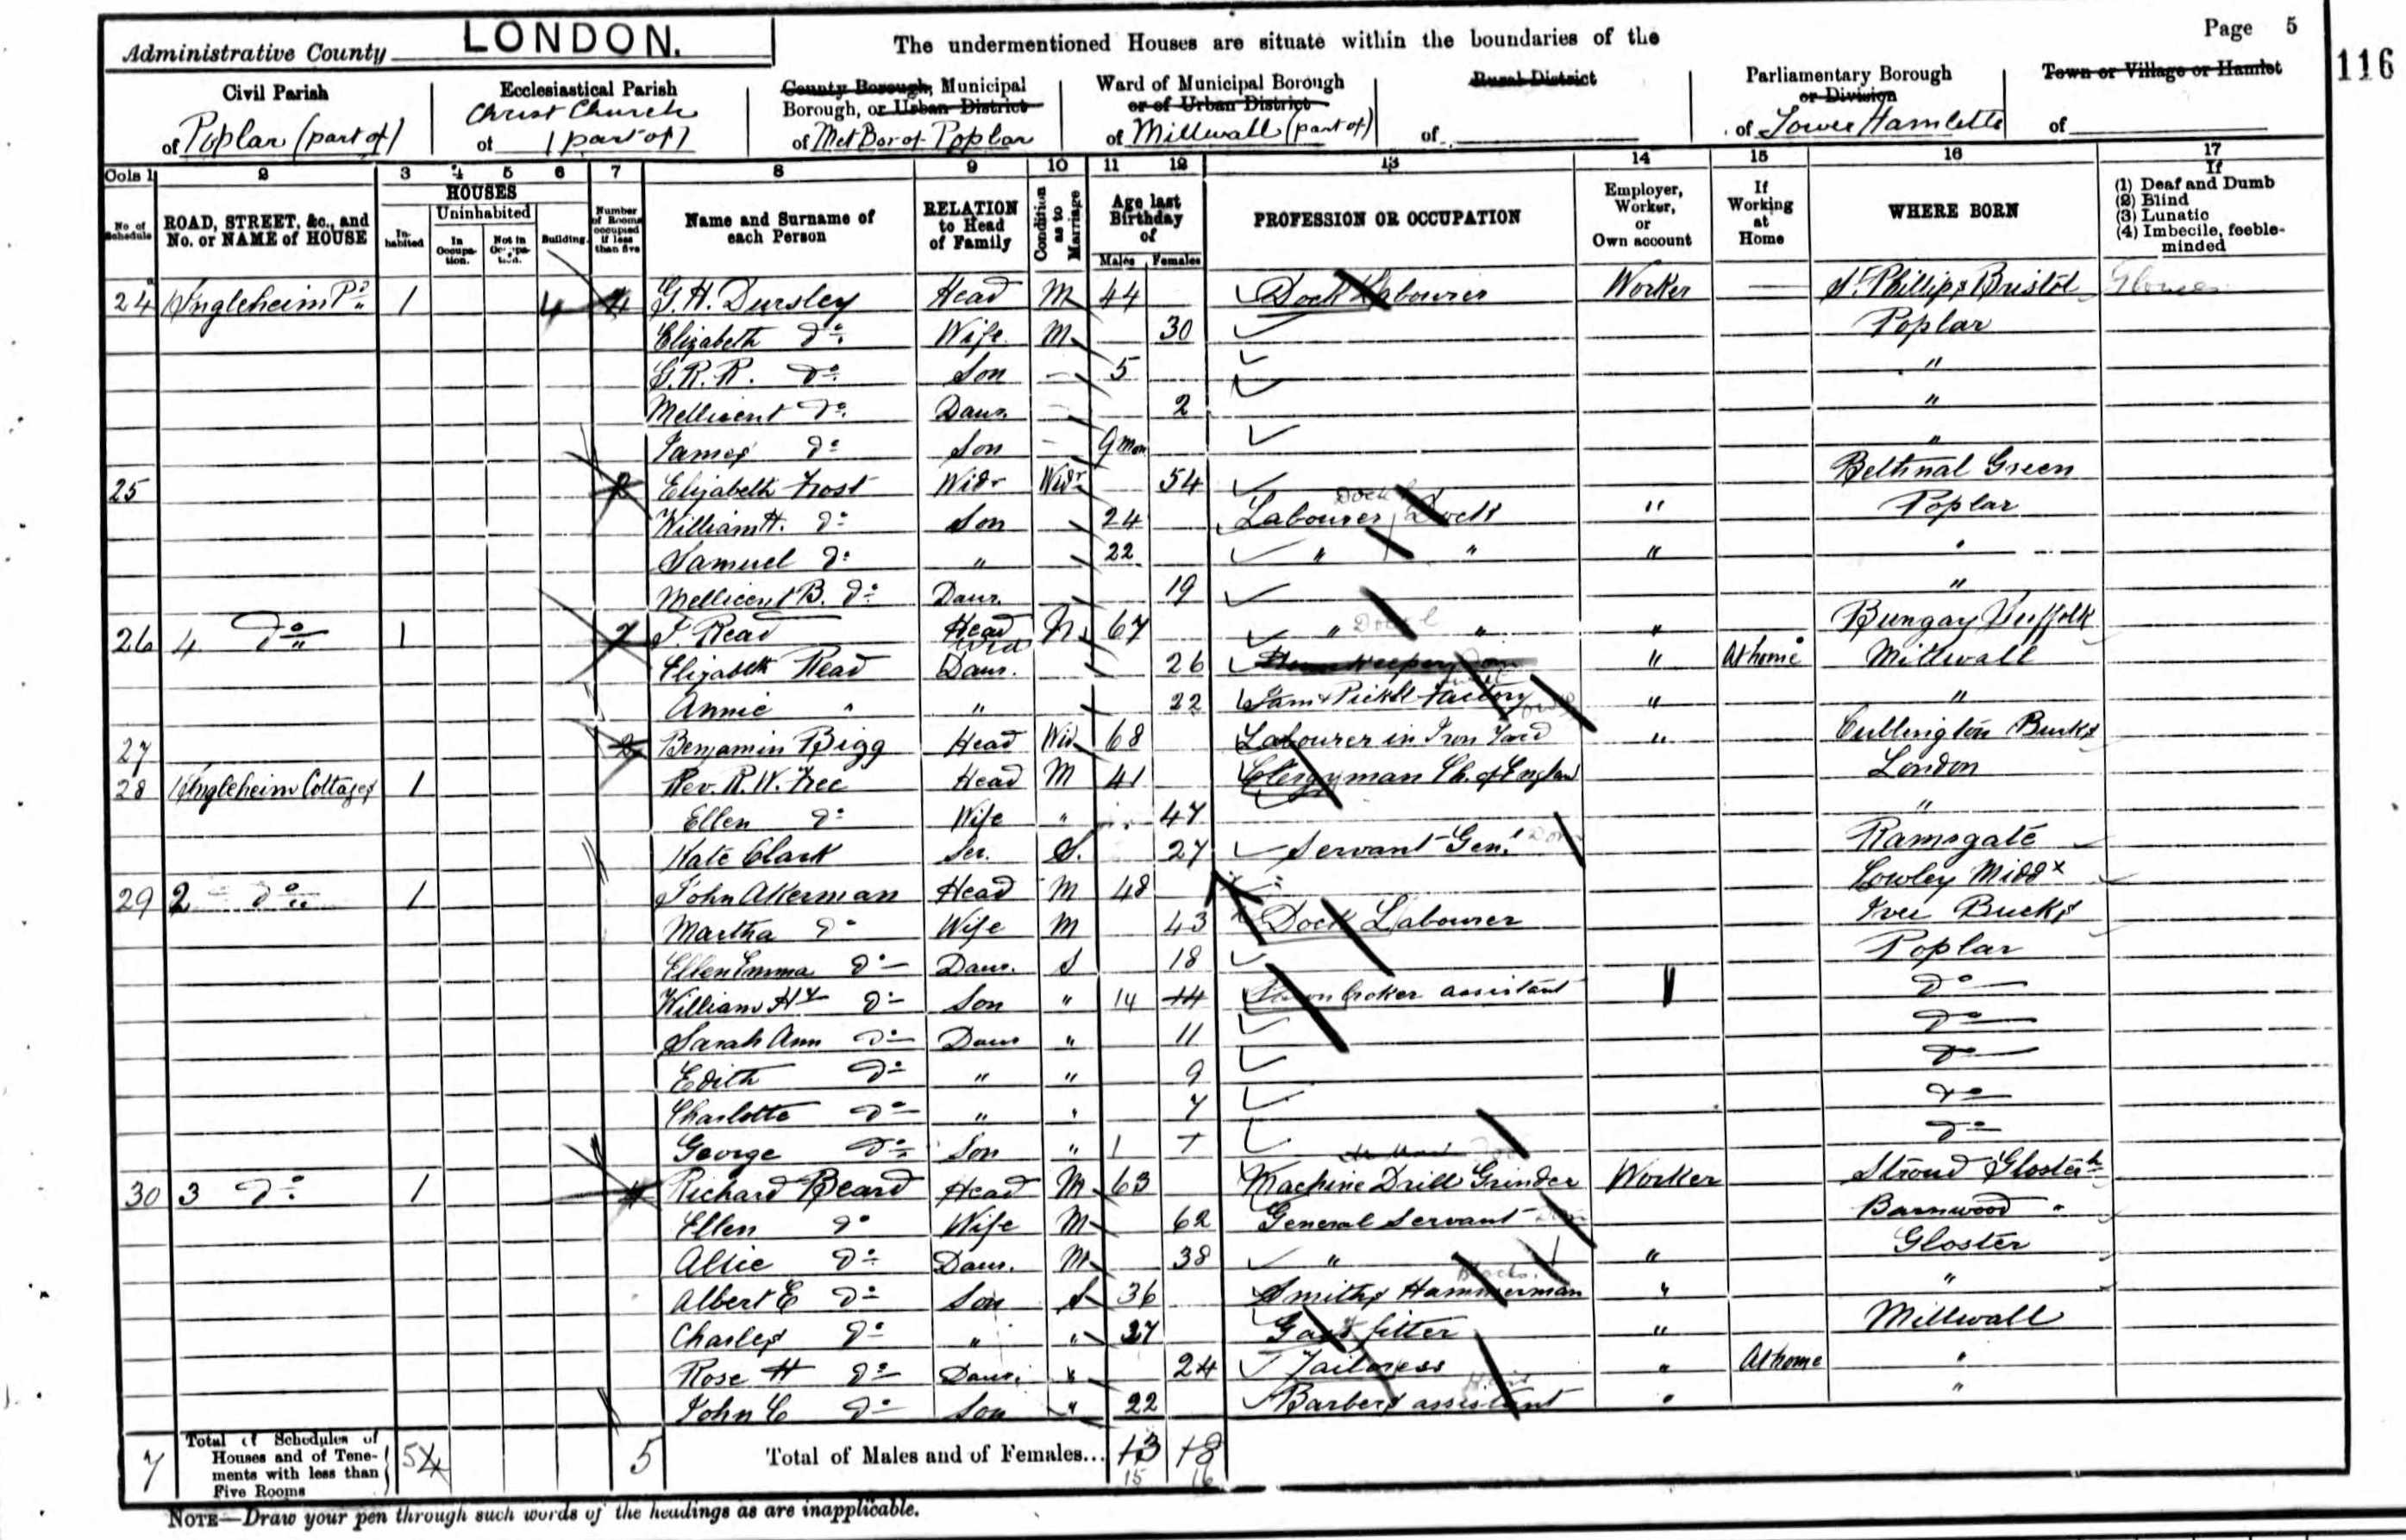 Page 5
116
Administrative County LONDON.
The undermentioned Houses are situate within the boundaries of the
Civil Parish of Poplar (part of)
Ecclesiastical Parish of Christ Church (part of)
County Borough, Municipal Borough, or Urban District of Met Bor of Poplar
Ward of Municipal Borough or of Urban District of Millwall (part of)
Rural District of
Parliamentary Borough or Division of Tower Hamletts
Town or Village or Hamlet of
Cols 1 2 3 4 5 6 7 8 9 10 11 12 13 14 15 16 17
No of Schedule
ROAD, STREET, &c., and No. or NAME of HOUSE
HOUSES
Inhabited
Uninhabited
In Occupation.
Not in Occupation.
Building.
Number of Rooms occupied if less than five
Name and Surname of each Person
RELATION to Head of Family
Condition as to Marriage
Age last Birthday of
Males Females
PROFESSION OR OCCUPATION
Employer, Worker, or Own account
If Working at Home
WHERE BORN
If
(1) Deaf and Dumb
(2) Blind
(3) Lunatic
(4) Imbecile, feeble-minded
24 Ingleheim Po 1 4 4 G. H. Dursley Head M 44 Dock Labourer Worker — St Phillips Bristol
Elizabeth Do Wife M 30 Poplar
G. R. R. Do Son – 5 "
Mellicent Do Daur. – 2 "
James Do Son – 9 mon "
25 2 Elizabeth Frost Widr Widr 54 Bethnal Green
William H. Do Son 24 Labourer Dock " Poplar
Samuel Do " 22 " " " "
Mellicent B. Do Daur. 19 "
26 4 Do 1 2 J. Read Head Wid 67 " " " Bungay Suffolk
Elizabeth Read Daur. 26 Housekeeper " At home Millwall
Annie " " 22 Jam & Pickle Factory " "
27 2 Benjamin Bigg Head Wid 68 Labourer in Iron Yard " Cullington Bucks
28 1 Ingleheim Cottages 1 Rev. R. W. Free Head M 41 Clergyman Ch. of England London
Ellen Do Wife " 47 "
Kate Clark Ser. S. 27 Servant Genl Ramsgate
29 2 Do 1 John Akerman Head M 48 Cowley Middx
Martha Do Wife M 43 Dock Labourer Iver Bucks
Ellen Emma Do Daur. S 18 Poplar
William Hy Do Son " 14 14 broker assistant Do
Sarah Ann Do Daur " 11 Do
Edith Do " " 9 Do
Charlotte Do " " 7 Do
George Do Son " 1 Do
30 3 Do 1 4 Richard Beard Head M 63 Machine Drill Grinder Worker Stroud Gloster
Ellen Do Wife M 62 General Servant Barnwood "
Allie Do Daur. M 38 " " Gloster
Albert E Do Son S 36 Smiths Hammerman " "
Charles Do " " 27 Gas fitter " Millwall
Rose H Do Daur. " 24 Tailoress " At home "
John C Do Son " 22 Barbers assistant " "
7 Total of Schedules of Houses and of Tenements with less than Five Rooms 5 4 5 Total of Males and of Females... 13 18
15 16
NOTE—Draw your pen through such words of the headings as are inapplicable.